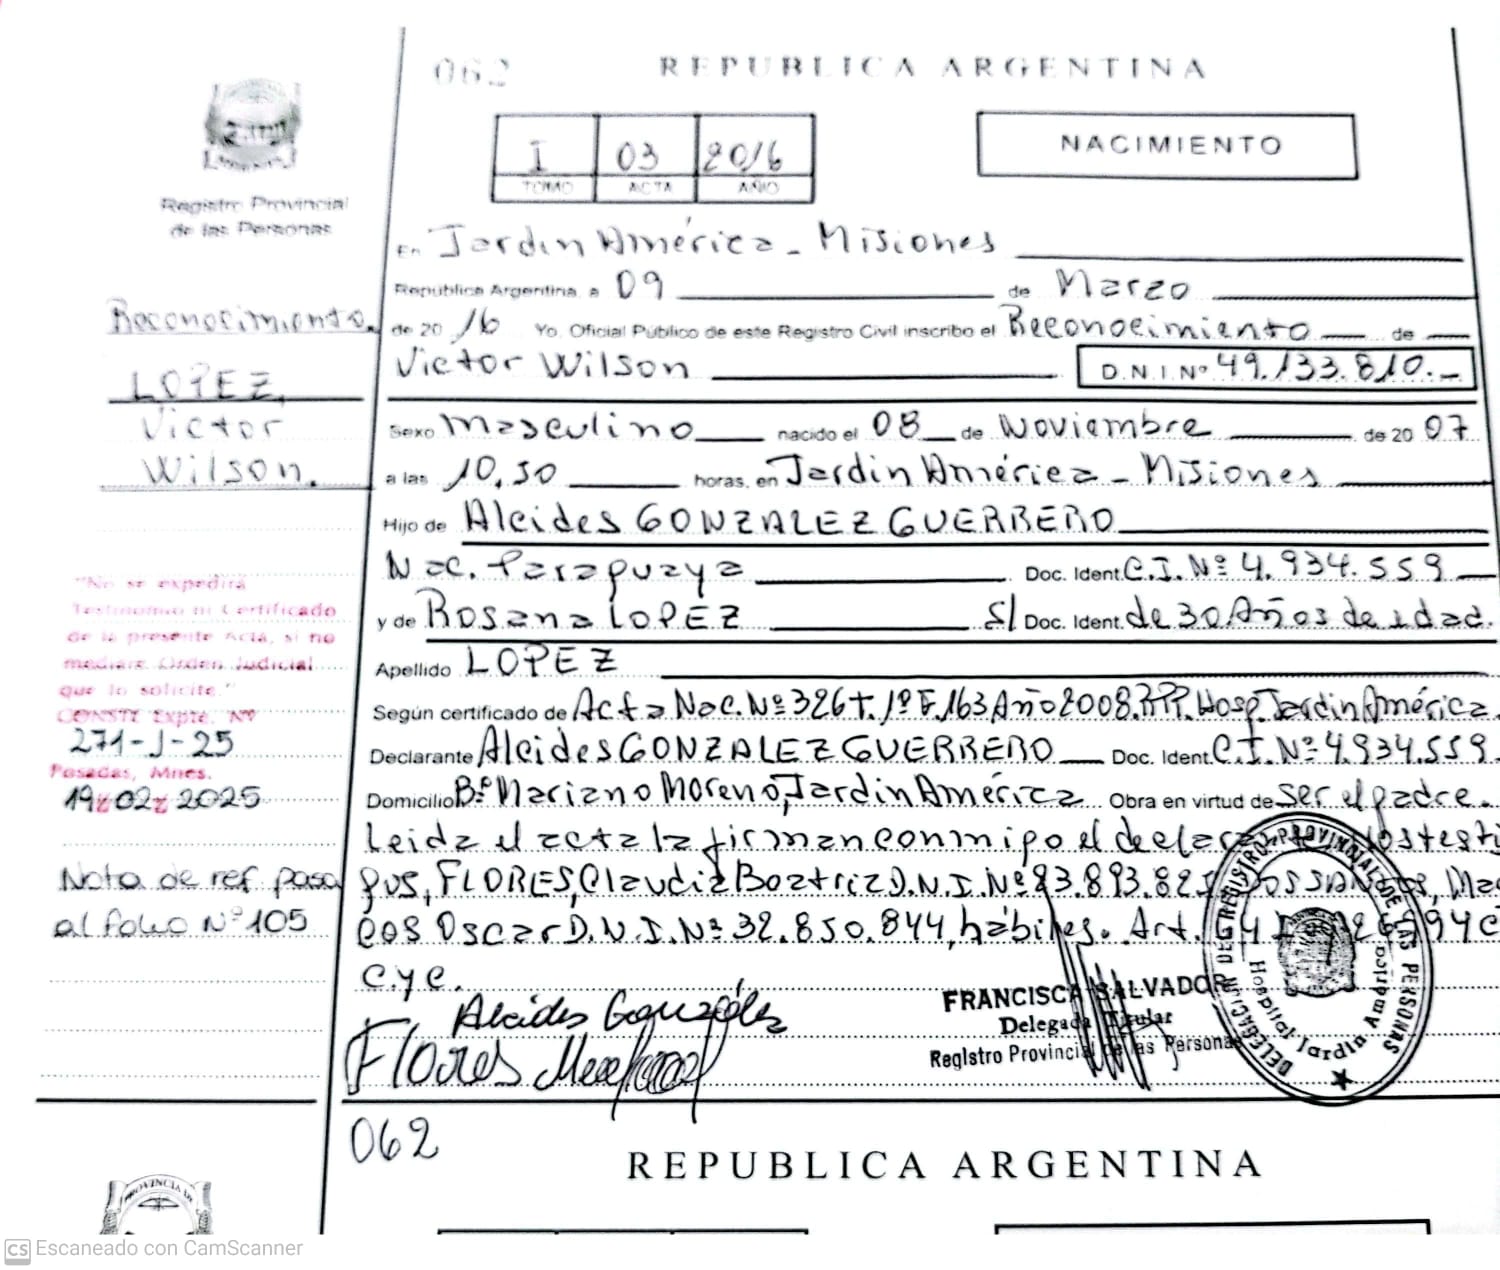 062
REPUBLICA ARGENTINA
I 03 2016
TOMO ACTA AÑO
NACIMIENTO
Registro Provincial
de las Personas
En Jardin América - Misiones
República Argentina, a 09 de Marzo
de 20 16 Yo, Oficial Público de este Registro Civil inscribo el Reconocimiento de
Victor Wilson D.N.I. Nº 49.133.810.-
Sexo Masculino nacido el 08 de Noviembre de 20 07
a las 10,30 horas, en Jardin América - Misiones
Hijo de Alcides GONZALEZ GUERRERO
Nac. Paraguaya Doc. Ident. C.I. Nº 4.934.559
y de Rosana LOPEZ S/ Doc. Ident. de 30 Años de edad.
Apellido LOPEZ
Según certificado de Acta Nac. Nº 326 T. 1º F. 163 Año 2008. RPP. Hosp. Jardin América.
Declarante Alcides GONZALEZ GUERRERO Doc. Ident. C.I. Nº 4.934.559.
Domicilio Bº Mariano Moreno, Jardin América Obra en virtud de ser el padre.
Leida el acta la firman conmigo el los testi
gos, FLORES, Claudia Beatriz D.N.I. Nº
cos Oscar D.N.I. Nº 32.850.844, hábiles. Art.
C.y C.
Alcides González
Flores
FRANCISCA SALVADOR
Delegada Titular
Registro Provincial de las Personas
DELEGACION DE REGISTRO PROVINCIAL DE LAS PERSONAS
Hospital Jardin América
Reconocimiento.
LOPEZ,
Victor
Wilson.
"No se expedirá
Testimonio ni Certificado
de la presente Acta, si no
mediare Orden Judicial
que lo solicite."
CONSTE Expte. Nº
271-J-25
Posadas, Mnes.
19 02 2025
Nota de ref. pasa
al folio Nº 105
062
REPUBLICA ARGENTINA
PROVINCIA DE
CS Escaneado con CamScanner